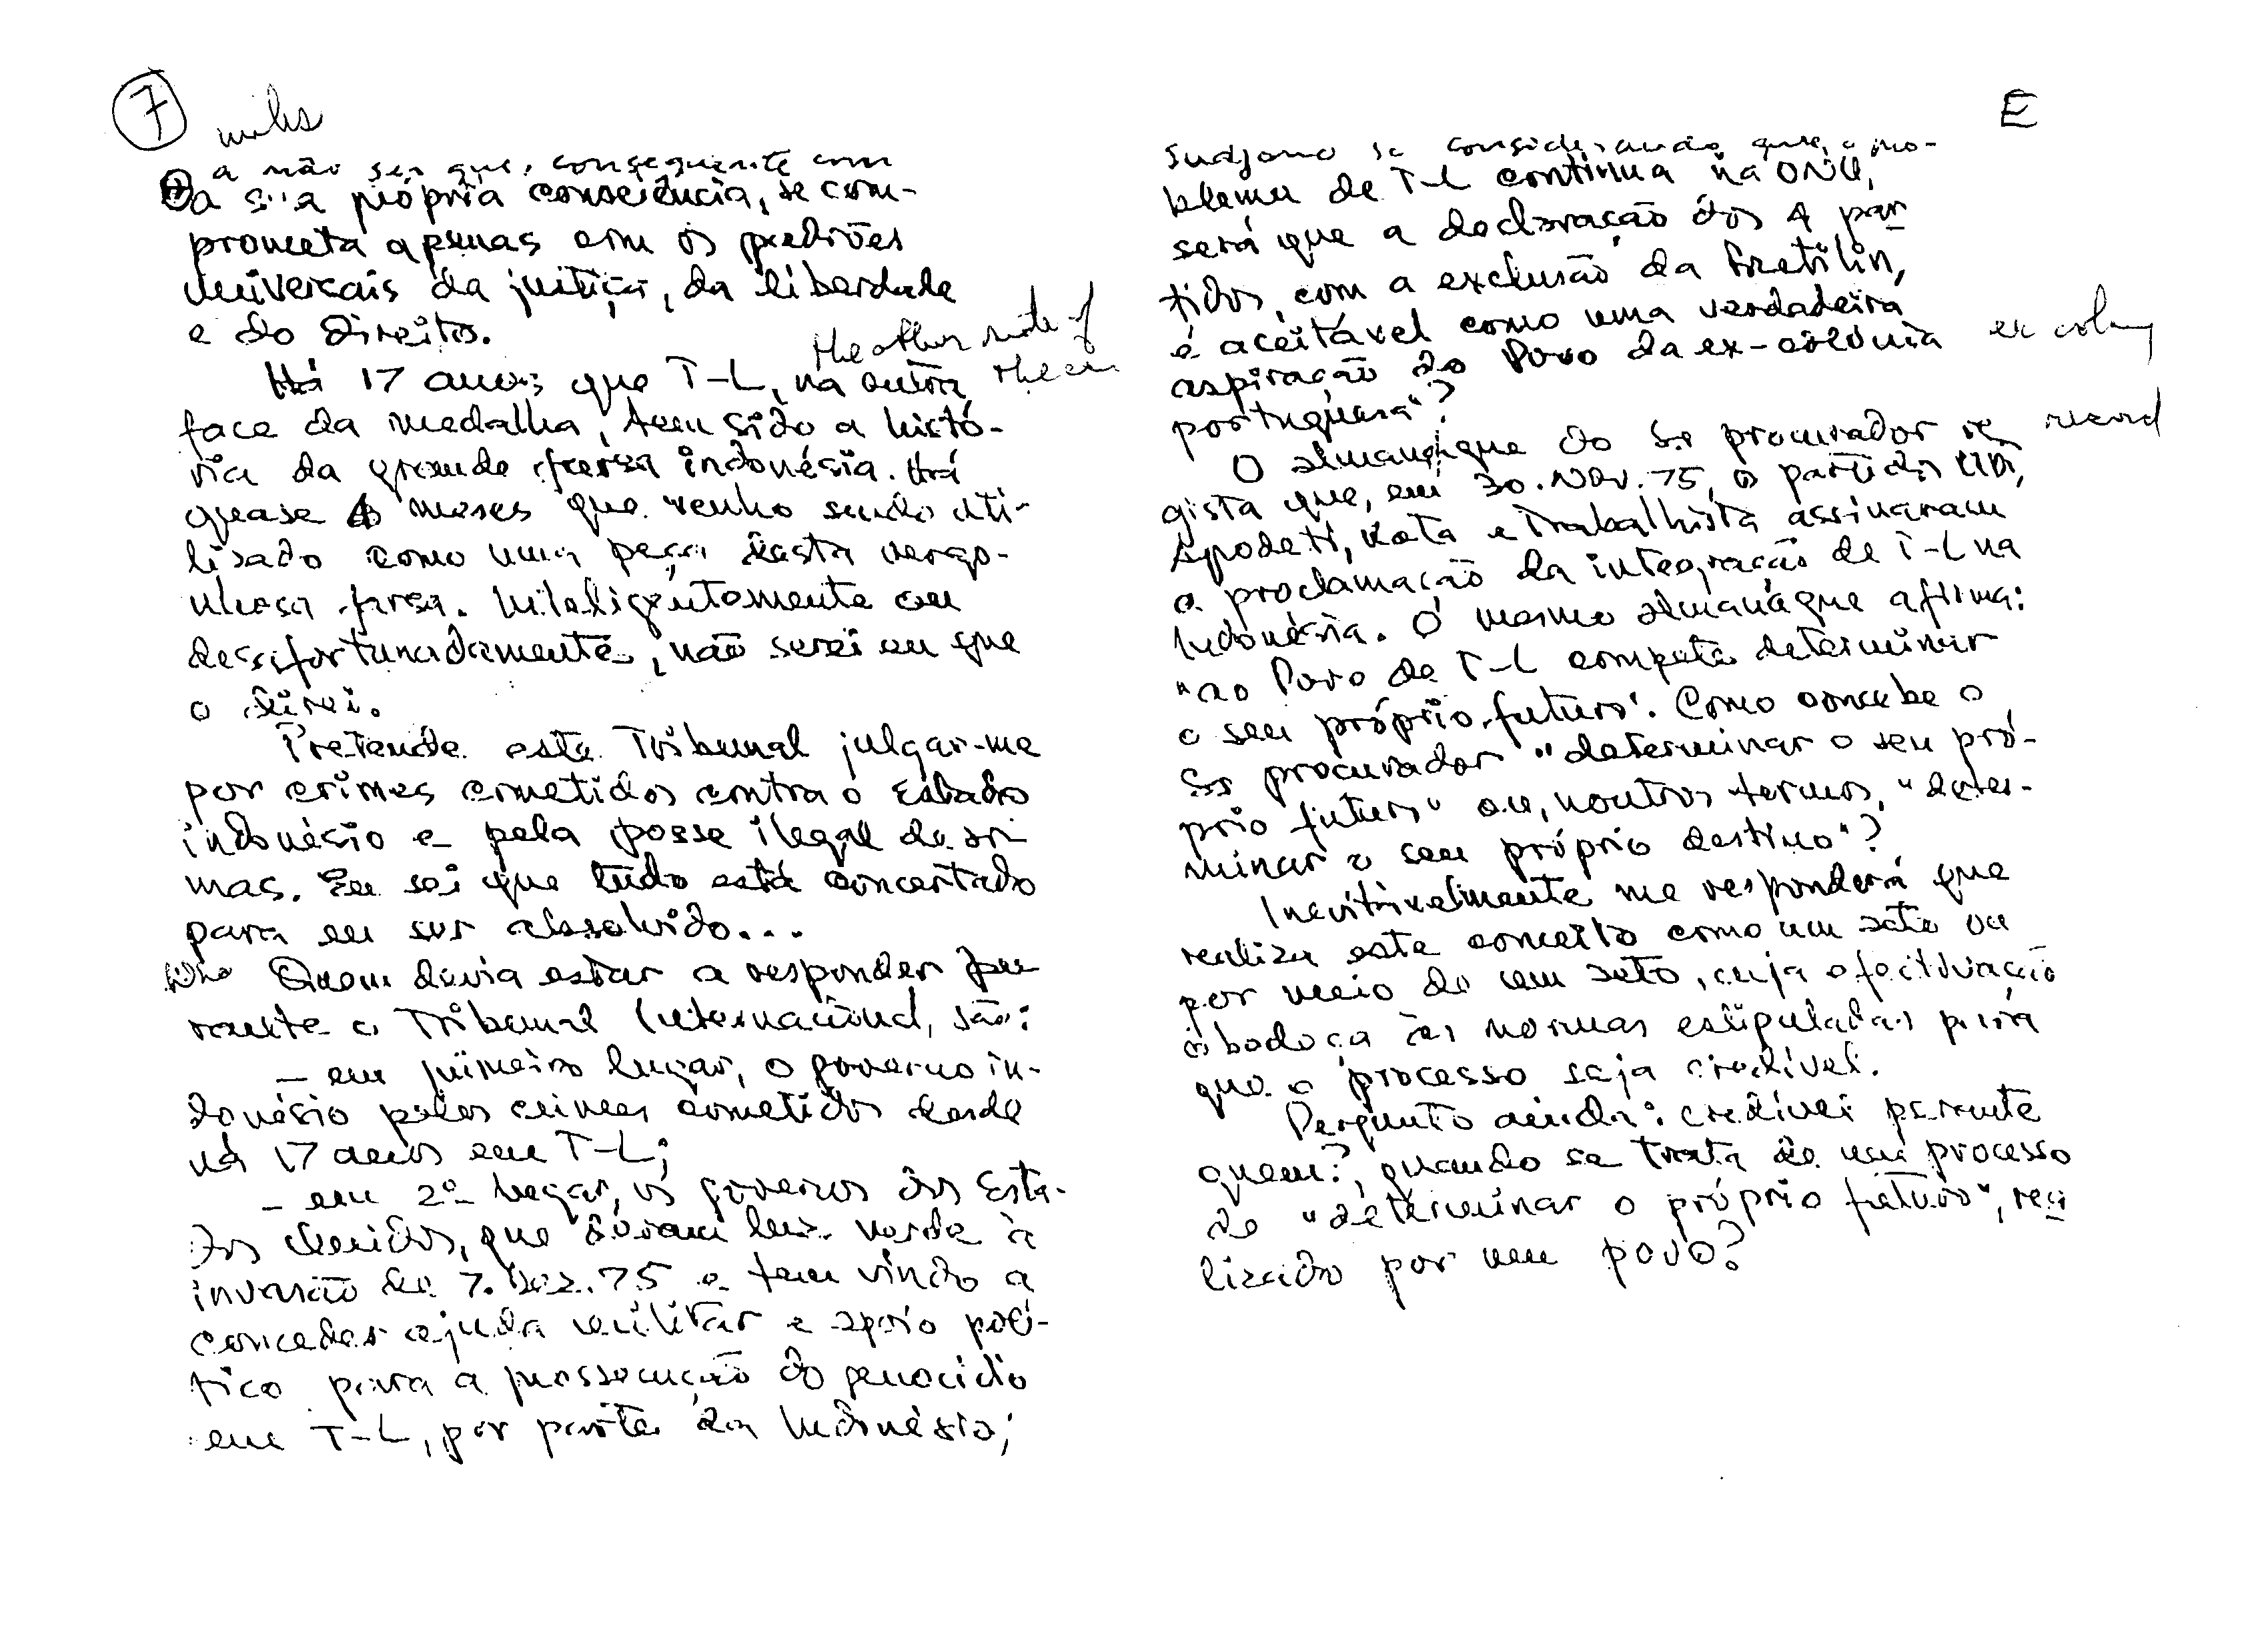 7
a não ser que, consequente com
a sua própria consciência, se com-
prometa apenas com os padrões
universais da justiça, da liberdade
e do direito.
the other side of
Há 17 anos que T-L, na outra
face da medalha, tem sido a histó-
ria da grande farsa indonésia. Há
quase 4 meses que venho sendo uti-
lizado como uma peça desta vergo-
nhosa farsa. Inteligentemente ou
desafortunadamente, não serei eu que
o direi.
Pretende este Tribunal julgar-me
por crimes cometidos contra o Estado
indonésio e pela posse ilegal de ar-
mas. Eu sei que tudo está concertado
para eu ser absolvido...
Who Quem devia estar a responder pe-
rante o Tribunal Internacional, são:
- em primeiro lugar, o governo in-
donésio pelos crimes cometidos desde
há 17 anos em T-L;
- em 2º lugar, os governos dos Esta-
dos Unidos, que deram luz verde à
invasão de 7. Dez. 75 e tem vindo a
conceder ajuda militar e apoio polí-
tico para a prossecução do genocídio
em T-L, por parte da Indonésia;
E
Sudjono se considerando que o pro-
blema de T-L continua na ONU,
será que a declaração dos 4 par
tidos, com a exclusão da Fretilin,
é aceitável como uma verdadeira
aspiração do Povo da ex-colónia ex colony
portuguesa"?
O almanaque do Sr procurador re record
gista que, em 30. Nov. 75, os partidos UDT,
Apodeti, Kota e Trabalhista assinaram
a proclamação da integração de T-L na
Indonésia. O mesmo almanaque afirma:
"ao Povo de T-L compete determinar
o seu próprio futuro". Como concebe o
Sr procurador "determinar o seu pró-
prio futuro" ou, noutros termos, "deter-
minar o seu próprio destino"?
Inevitavelmente me responderá que
realiza este conceito como um acto ou
por meio de um acto, cuja efectivação
obedeça às normas estipuladas para
que o processo seja credível.
Pergunto ainda: credível perante
quem?, quando se trata de um processo
de "determinar o próprio futuro", rea
lizado por um povo?